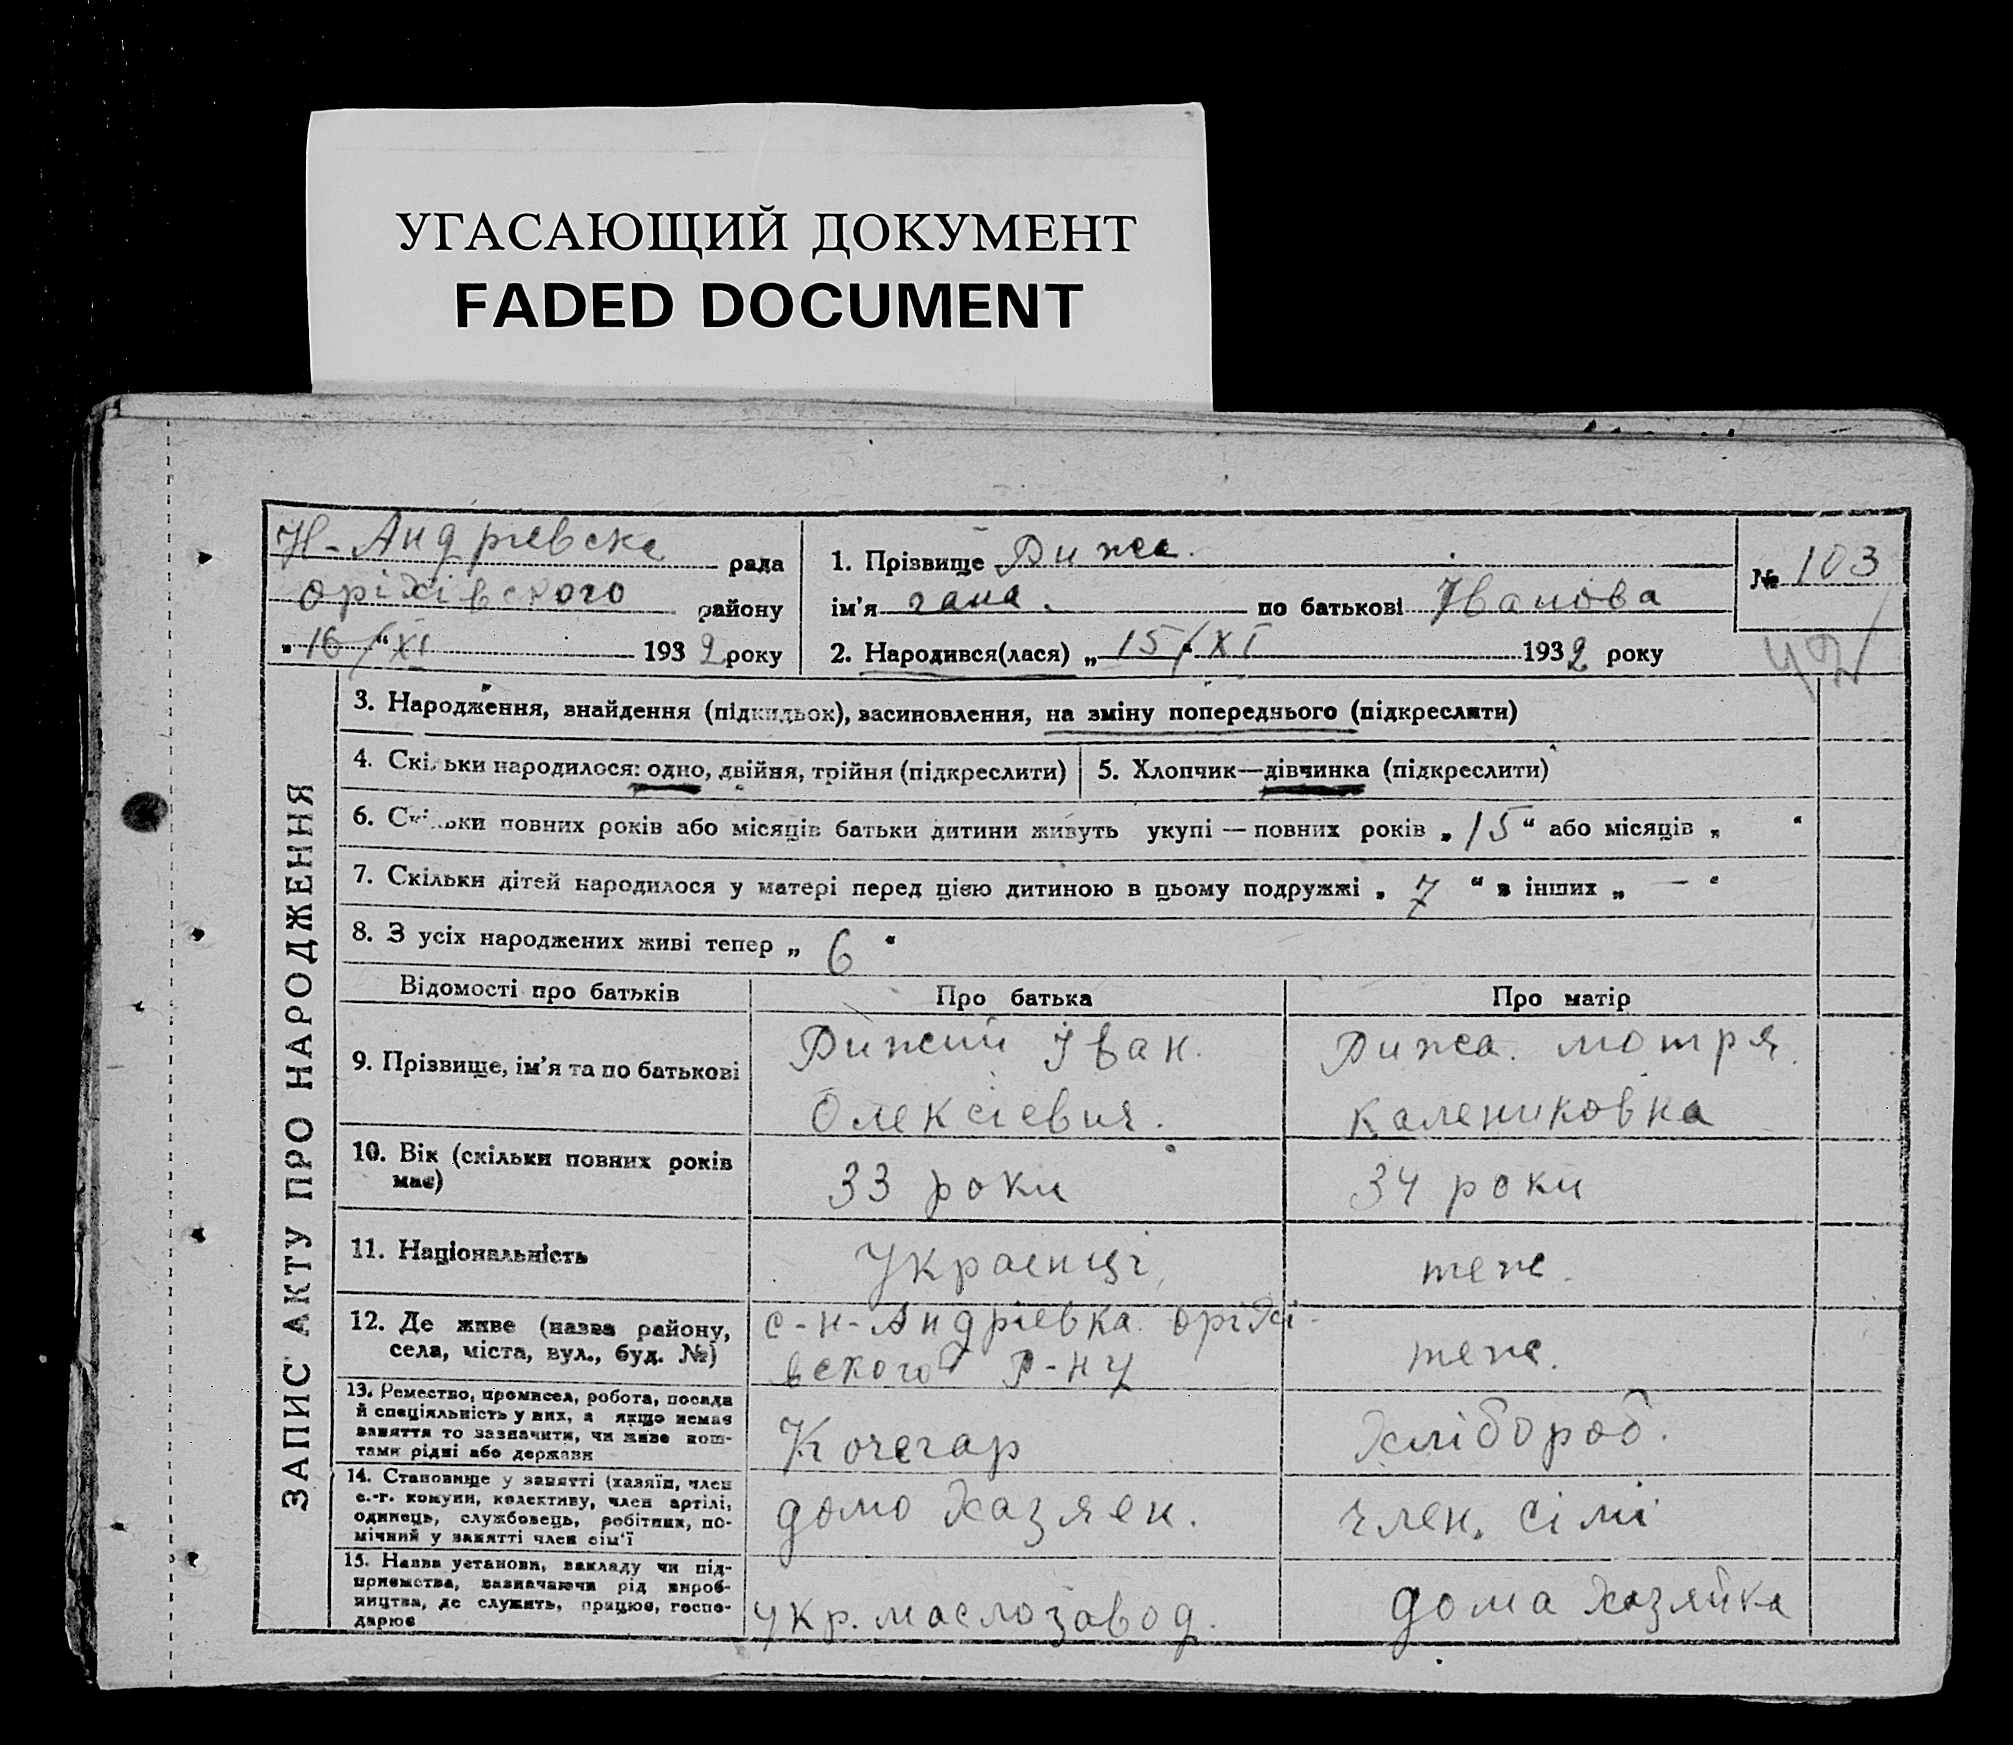 УГАСАЮЩИЙ ДОКУМЕНТ
FADED DOCUMENT
Н-Андрієвска рада
оріхівського району
„16/XI“ 1932 року
1. Прізвище Рижа.
ім’я гана. по батькові Іванова
2. Народився(лася) „15/XI 1932 року
№ 103
ЗАПИС АКТУ ПРО НАРОДЖЕННЯ
3. Народження, внайдення (підкидьок), васиновлення, на зміну попереднього (підкреслити)
4. Скільки народилося: одно, двійня, трійня (підкреслити)
5. Хлопчик—дівчинка (підкреслити)
6. Скільки повних років або місяців батьки дитини живуть укупі — повних років „15“ або місяців „ “
7. Скільки дітей народилося у матері перед цією дитиною в цьому подружжі „7“ в інших „—“
8. З усіх народжених живі тепер „6“
Відомості про батьків Про батька Про матір
9. Прізвище, ім’я та по батькові
Рижий Іван.
Олексієвич.
Рижа. мотря.
калениковна
10. Вік (скільки повних років
має)
33 роки
34 роки
11. Національність
Украєнці
теже.
12. Де живе (назва району,
села, міста, вул., буд. №)
с-н-Андрієвка оріхі-
вского р-ну
теже.
13. Ремество, промисел, робота, посада
й спеціяльність у них, а якщо немає
заняття то зазначити, чи живе кош-
тами рідні або держави
Кочегар
хлібороб.
14. Становище у занятті (хазяїн, член
с.-г. комуни, колективу, член артілі,
одинець, службовець, робітник, по-
мічний у занятті член сім’ї
домо хазяен.
член. сімі
15. Назва установи, закладу чи під-
приємства, зазначаючи рід вироб-
ництва, де служить, працює, госпо-
дарює
укр. маслозавод.
дома хазяйка